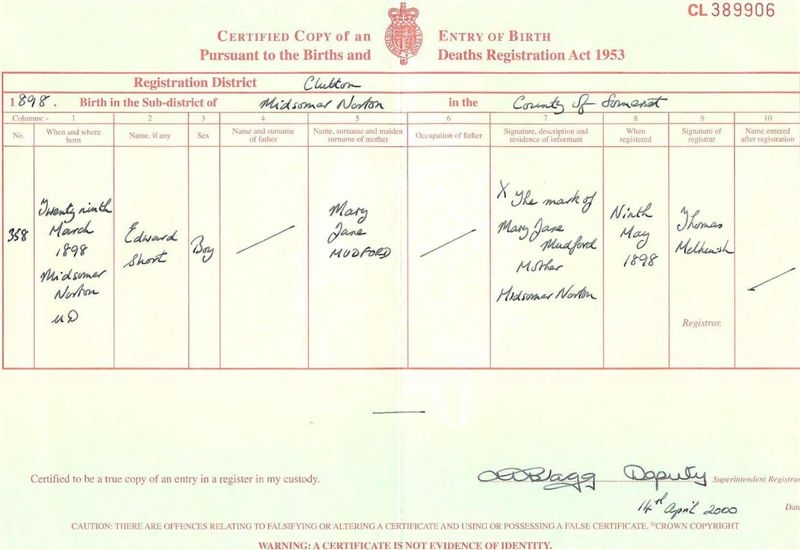 CL 389906
CERTIFIED COPY OF AN ENTRY OF BIRTH
Pursuant to the Births and Deaths Registration Act 1953
Registration District Clutton
1898. Birth in the Sub-district of Midsomer Norton in the County of Somerset
Columns:- 1 2 3 4 5 6 7 8 9 10
No. When and where born Name, if any Sex Name and surname of father Name, surname and maiden surname of mother Occupation of father Signature, description and residence of informant When registered Signature of registrar Name entered after registration
358
Twenty ninth
March
1898
Midsomer
Norton
UD
Edward
Short
Boy
Mary
Jane
MUDFORD
X The mark of
Mary Jane
Mudford
Mother
Midsomer Norton
Ninth
May
1898
Thomas
Melhuish
Registrar.
Certified to be a true copy of an entry in a register in my custody.
Bragg Deputy Superintendent Registrar
14th April 2000 Date
CAUTION: THERE ARE OFFENCES RELATING TO FALSIFYING OR ALTERING A CERTIFICATE AND USING OR POSSESSING A FALSE CERTIFICATE. ©CROWN COPYRIGHT
WARNING: A CERTIFICATE IS NOT EVIDENCE OF IDENTITY.